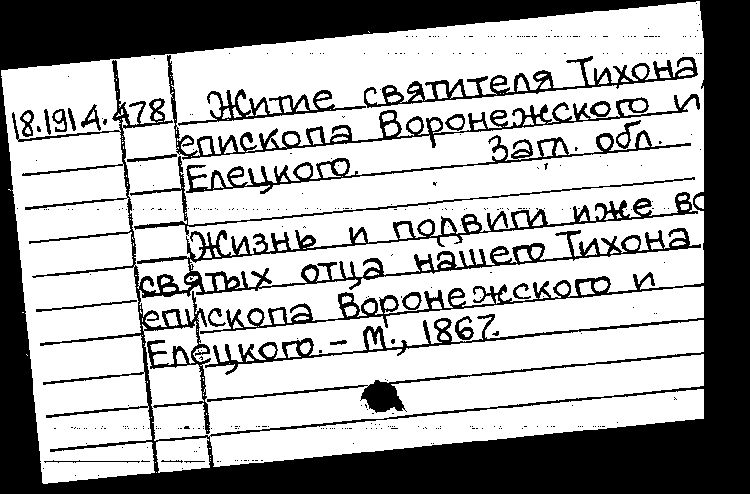 18.191.4.478 Житие святителя Тихона,
епископа Воронежского и
Елецкого. Загл. обл.
Жизнь и подвиги иже во
святых отца нашего Тихона,
епископа Воронежского и
Елецкого. – М., 1867.